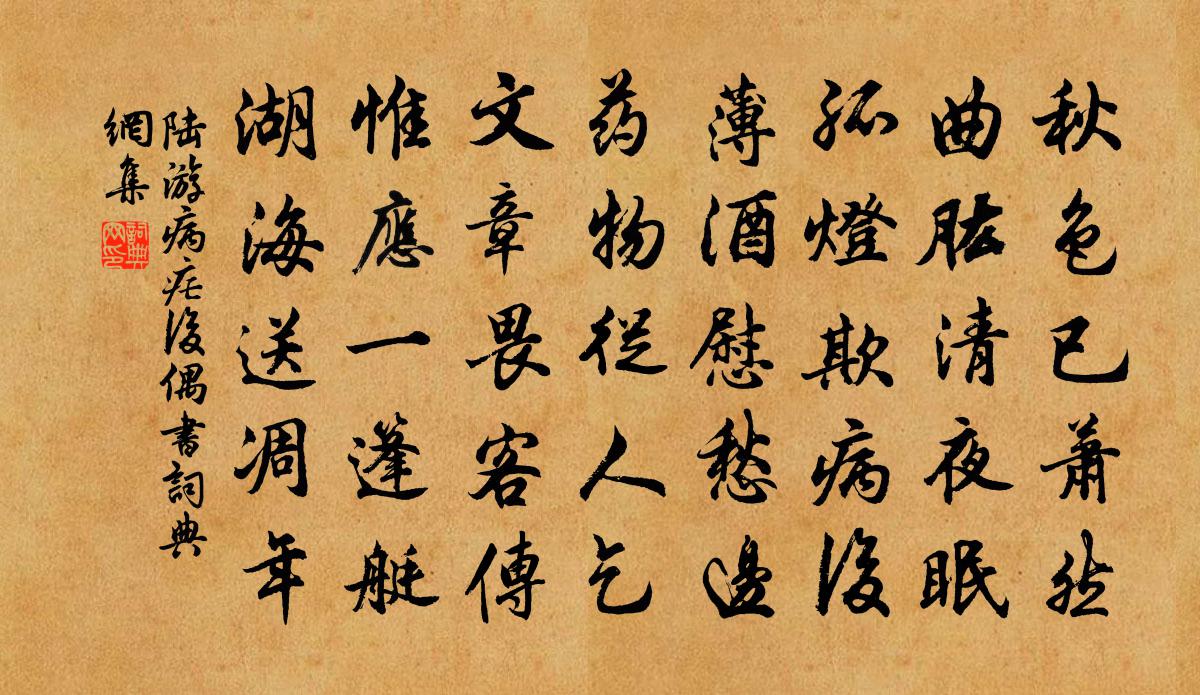 秋色已萧然
曲肱清夜眠
孤燈欺病後
薄酒慰愁邊
药物從人乞
文章畏客傳
惟應一蓬艇
湖海送凋年
陆游病疟後偶書詞典
網集
詞典
网印